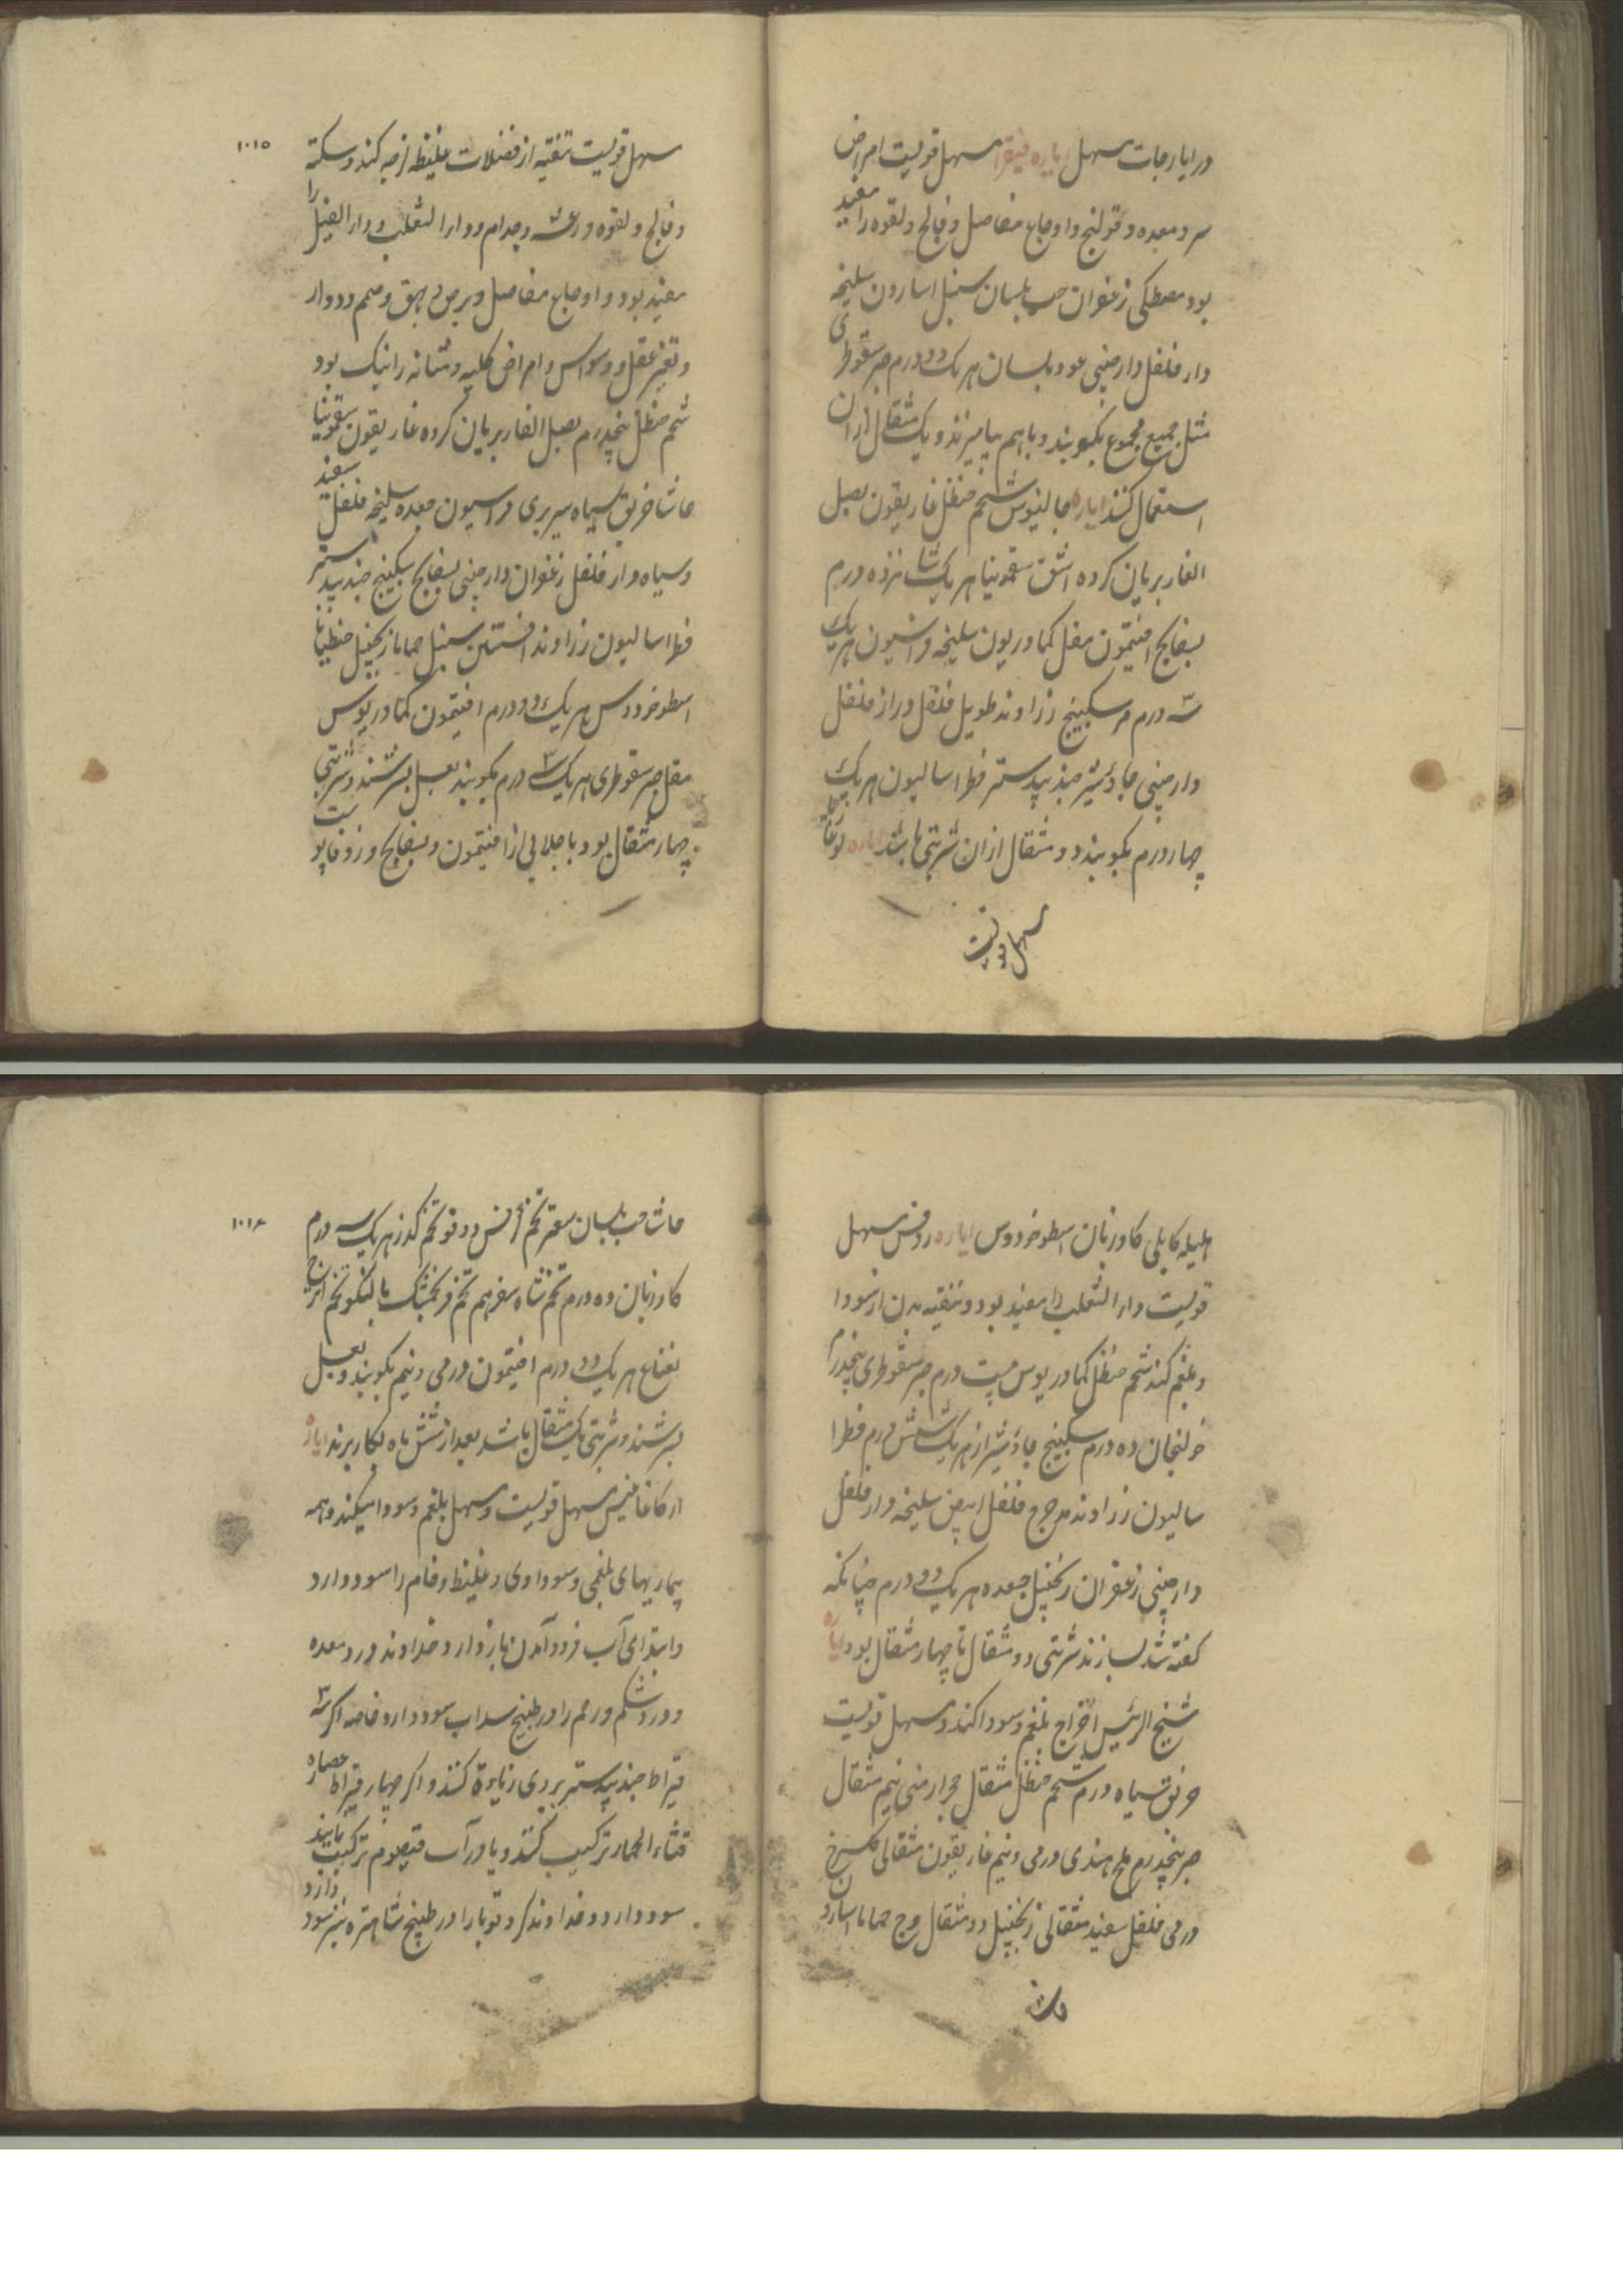 در ایارجات مسهل ایاره فیقرا مسهل قویست امراض
سر و معده و قولنج و اوجاع مفاصل و فالج و لقوه را مفید
بود مصطکی زعفران حب بلسان سنبل اسارون سلیخه
دار فلفل دارچینی عود بلسان هر یک دو درم صبر سقوطری
مثل جمیع مجموع بکوبند و باهم بیامیزند و یک مثقال ازان
استعمال کنند ایاره جالینوس شحم حنظل غاریقون بصل
الفار بریان کرده اشق سقمونیا هر یک شانزده درم
بسفایج افتیمون مقل کمادریون سلیخه فراسیون هر یک
سه درم مر سکبینج زراوند طویل فلفل دراز فلفل
دارچینی جاوشیر جندبیدستر فطراسالیون هر یک
چهار درم بکوبند دو مثقال ازان شربتی باشد ایاره لوغاذیا
مسهل قویست
۱۰۱۵
مسهل قویست تنقیه از فضلات غلیظ لزجه کند و سکته
و فالج و لقوه و رعشه و جذام و دار الثعلب و دار الفیل را
مفید بود و اوجاع مفاصل و برص و بهق و صمم و دوار
و تغیر عقل و وسواس و امراض کلیه و مثانه را نیک بود
شحم حنظل پنجدرم بصل الفار بریان کرده غاریقون سقمونیا
حاشا خربق سیاه سیر بری فراسیون جعده سلیخه فلفل سفید
و سیاه دار فلفل زعفران دارچینی بسفایج سکبینج جندبیدستر
فطراسالیون زراوند افسنتین سنبل حماما زنجبیل جنطیانا
اسطوخودوس هر یک دو درم افتیمون کمادریوس
مقل صبر سقوطری هر یک ۳ درم بکوبند بعسل بسرشند و شربتی
چهار مثقال بود با جلابی از افتیمون و بسفایج و زوفا پوست
هلیله کابلی کاوزبان اسطوخودوس ایاره روفس مسهل
قویست دار الثعلب را مفید بود و تنقیه بدن از سودا
و بلغم کند شحم حنظل کمادریوس بیست درم صبر سقوطری پنجدرم
خولنجان ده درم سکبینج جاوشیر از هر یک شش درم فطرا
سالیون زراوند مدحرج فلفل ابیض سلیخه دار فلفل
دارچینی زعفران زنجبیل جعده هر یک دو درم چنانکه
گفته شد بسازند شربتی دو مثقال تا چهار مثقال بود ایاره
شیخ الرئیس اخراج بلغم و سودا کند و مسهل قویست
خربق سیاه درم شحم حنظل مثقال حجر ارمنی نیم مثقال
صبر پنجدرم ملح هندی درمی و نیم غاریقون مثقالی کل سرخ
درمی فلفل سفید مثقالی زنجبیل دو مثقال وج حماما اسارون
حاشا
۱۰۱۶
حاشا حب بلسان سعتر تخم کرفس دوقو تخم گذر هر یک سه درم
کاوزبان ده درم تخم شاه سفرهم تخم فرنجمشک بالنکو تخم اترج
نعناع هر یک دو درم افتیمون درمی و نیم بکوبند و بعسل
بسرشند و شربتی یک مثقال باشد بعد از شش ماه بکار برند ایاره
ارکاغانیس مسهل قویست و مسهل بلغم و سودا میکند و همه
بیماریهای بلغمی و سوداوی و غلیظ و خام را سود دارد
و ابتدای آب فرود آمدن باز دارد و خداوند درد معده
و درد شکم و رحم را در طبیخ سداب سود دارد خاصه اکر سه
قیراط جندبیدستر بر وی زیاده کنند و اکر چهار قیراط عصاره
قثاء الحمار ترکیب کنند و یا در آب قیصوم ترکیب نمایند
سود دارد و خداوند کر و قوبا را در طبیخ شاهتره نیز سود دارد